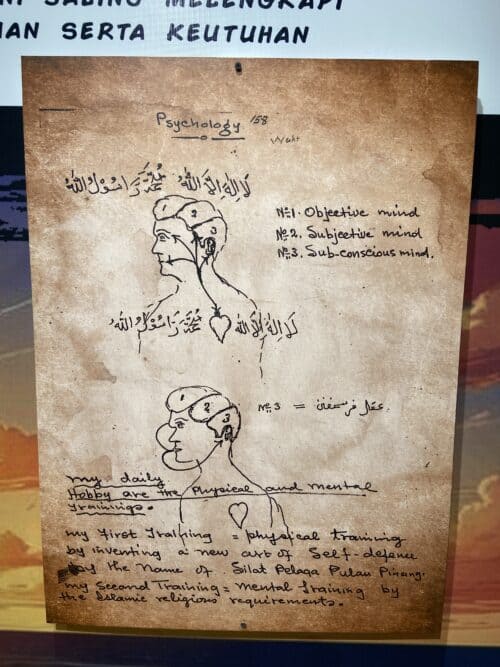 SALING MELENGKAPI
SERTA KEUTUHAN
Psychology 158
لا اله الا الله محمد رسول الله
1 2 3
No 1. Objective mind
No 2. Subjective mind
No 3. Sub-conscious mind.
لا اله الا الله محمد رسول الله
1 2 3
No 3 = عقل
my daily
Hobby are the physical and mental
trainings.
my First Training = physical training
by inventing a new art of Self-defance
by the Name of Silat Pelaga Pulau Pinang.
my Second Training = mental training by
the Islamic religious requirements.